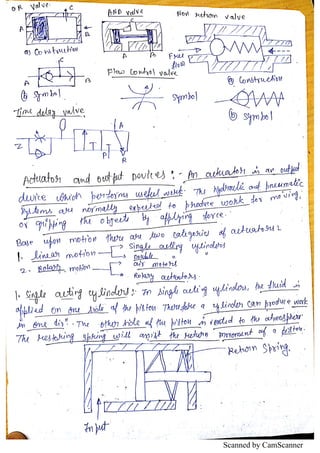 OR Valve
AND Valve
Non return valve
C
C
A
B
A
B
Free
flow
a) Construction
Flow control valve
a) Construction
C
A
B
b) Symbol
Symbol
b) Symbol
Time delay valve
A
Z
T
P
R
Actuator and output Devices :- An actuator is an output
device which performs useful work. The hydraulic and pneumatic
systems are normally expected to produce work for moving,
or gripping the objects by applying force.
Base upon motion there are two categories of actuators:
1. linear motion Single acting cylinders
Double
2. Rotary motion air motors
Rotary actuators
1. Single acting cylinders: In single acting cylinders, the fluid is
applied on one side of the piston Therefore a cylinder can produce work
in one dirn. The other side of the piston is vented to the atmosphere
The restoring spring will assist the return movement of a piston.
Return Spring
Input
Scanned by CamScanner